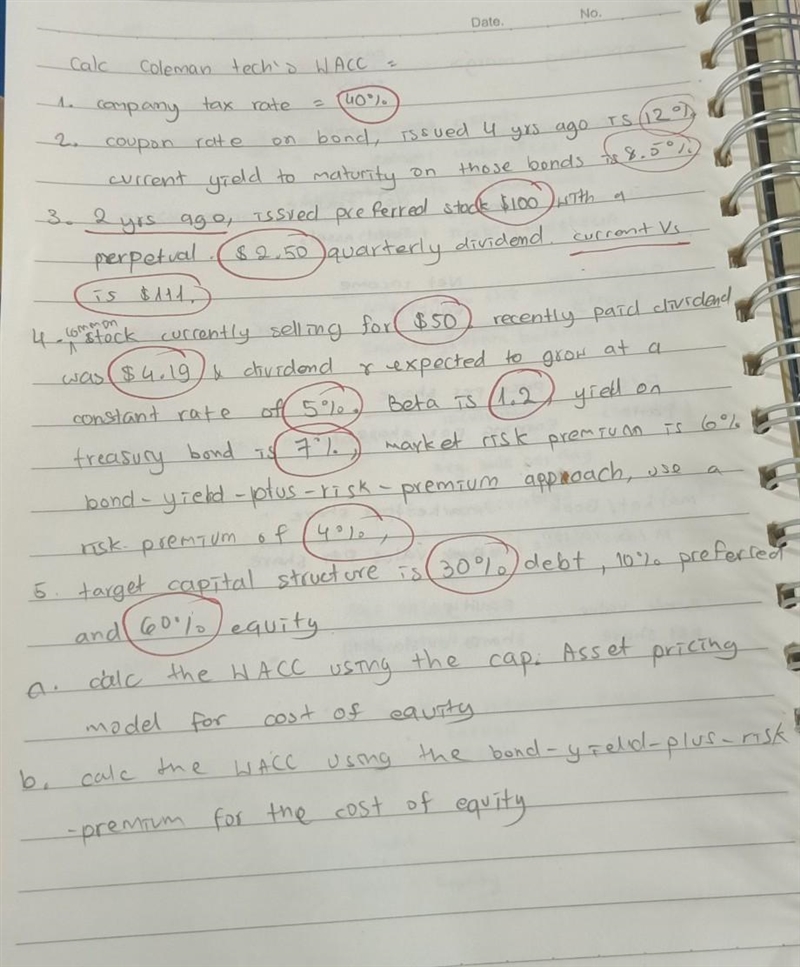 Date.
No.
Calc Coleman tech's WACC =
1. company tax rate = 40%
2. coupon rate on bond, issued 4 yrs ago is 12%
current yield to maturity on those bonds is 8.5%
3. 2 yrs ago, issued preferred stock $100 with a
perpetual $2.50 quarterly dividend. current Vs
is $111.
4. common stock currently selling for $50, recently paid dividend
was $4.19 & dividend r expected to grow at a
constant rate of 5%. Beta is 1.2, yield on
treasury bond is 7%, market risk premium is 6%
bond-yield-plus-risk-premium approach, use a
risk premium of 4%,
5. target capital structure is 30% debt, 10% preferred
and 60% equity
a. calc the WACC using the cap. Asset pricing
model for cost of equity
b. calc the WACC using the bond-yield-plus-risk
-premium for the cost of equity